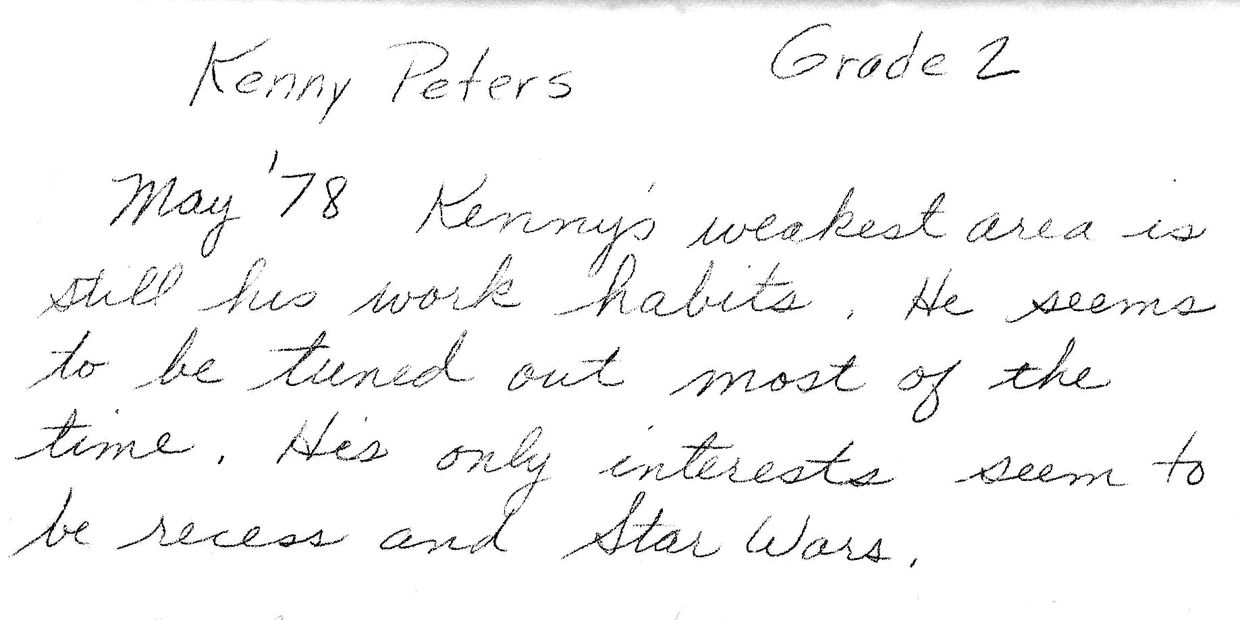 Kenny Peters Grade 2
May '78 Kenny's weakest area is
still his work habits. He seems
to be tuned out most of the
time. His only interests seem to
be recess and Star Wars.